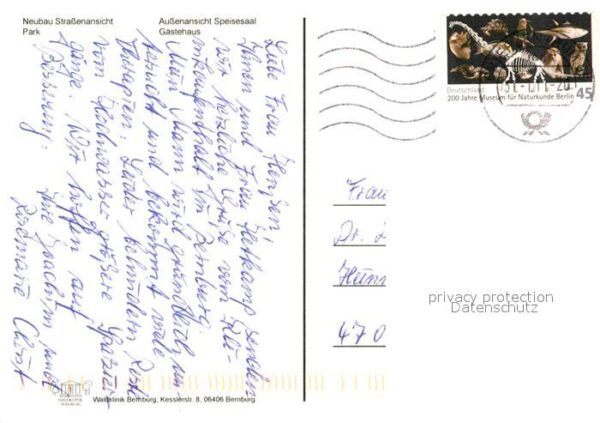 Neubau Straßenansicht
Park
Außenansicht Speisesaal
Gästehaus
Liebe Frau
Ihnen und Frau senden
wir herzliche Grüße vom
in Bernburg.
Mein Mann wird gründlich un-
tersucht und bekommt viele
Therapien. Leider behindern Reste
vom Hochwasser größere Spazier-
gänge. Wir hoffen auf
Besserung.
Ihre Joachim und
Rosemarie Christ
Deutschland
200 Jahre Museum für Naturkunde Berlin
45
Frau
Dr.
470
privacy protection
Datenschutz
Waldklinik Bernburg, Kesslerstr. 8, 06406 Bernburg